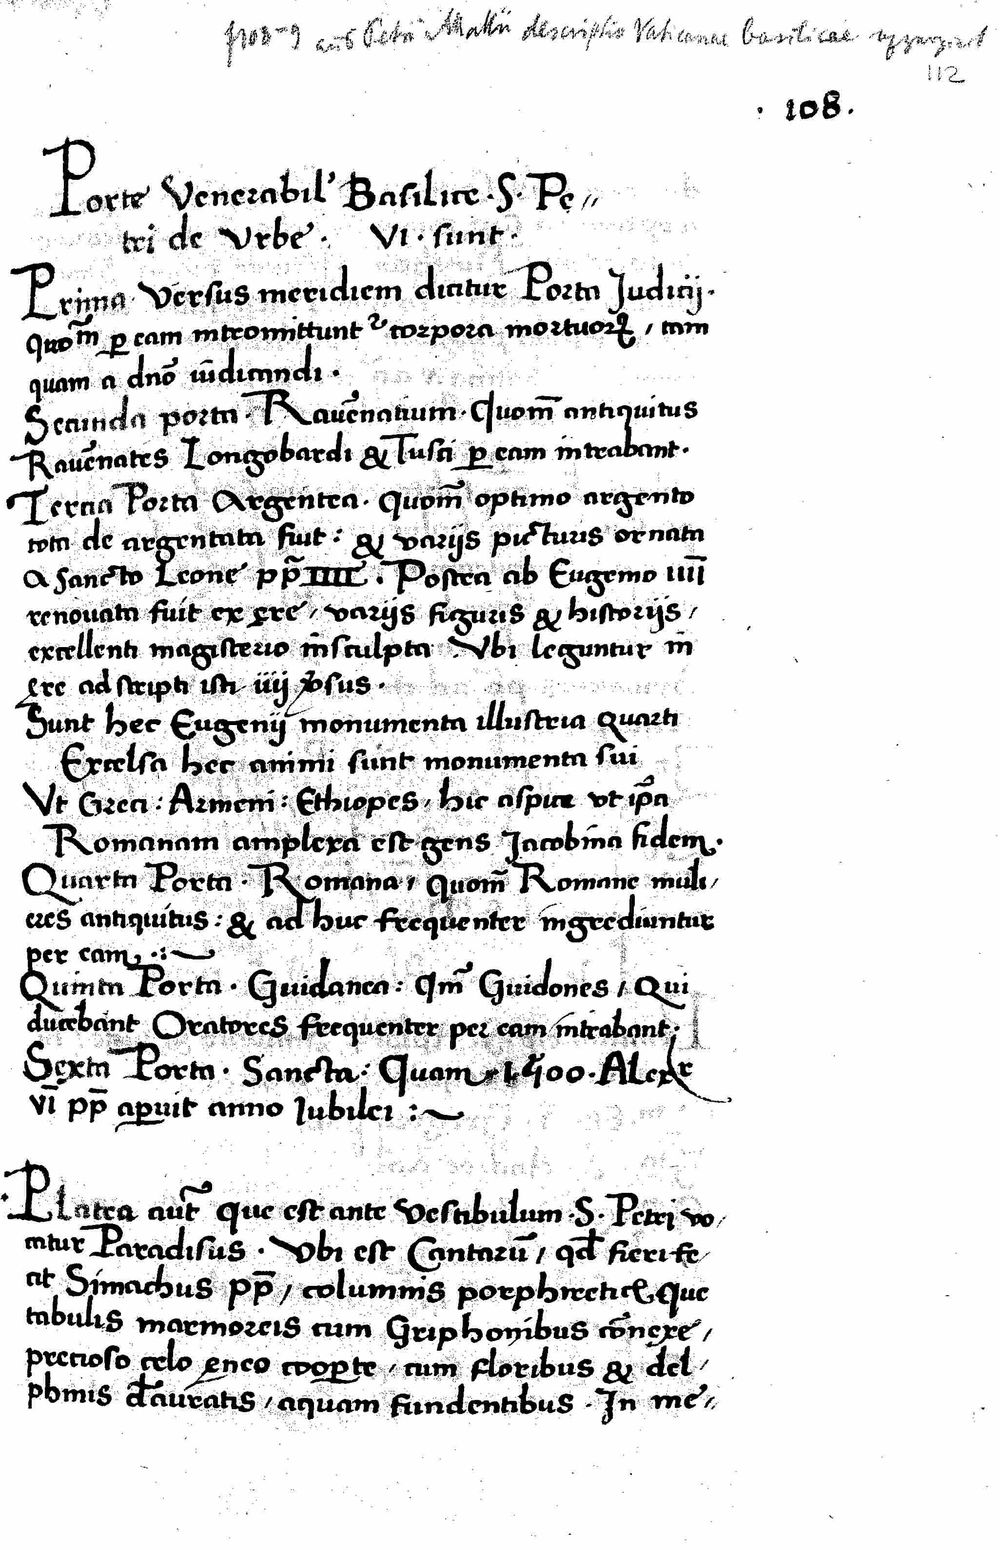 f 108-9 aus Petri Mallii descriptio Vaticanae basilicae
112
· 108 ·
Porte Venerabil' Basilice · S · Pe//
tri de Vrbe · VI · sunt ·
Prima · Versus meridiem dicitur Porta Judicij ·
quom̄ ꝑ eam intromittunt᷑ corpora mortuoꝝ / tam
quam a dnō iūdicandi ·
Secunda porta · Rauēnatium · Quom̄ antiquitus
Rauēnates Longobardi & Tusci ꝑ eam intrabant ·
Tercia Porta Argentea · quom̄ optimo argento
tota de argentata fuit : & varijs picturis ornata
a Sancto Leone pp̄ IIII · Postea ab Eugenio IIII
renouata fuit ex ęre / varijs figuris & historijs /
excellenti magisterio īnsculpta Vbi leguntur īn
ęre adscripti isti iiij v̄sus ·
Sunt hec Eugenij monumenta illustria Quarti
Excelsa hec animi sunt monumenta sui
Vt Greci : Armeni : Ethiopes / hic aspice vt ip̄a
Romanam amplexa est gens Jacobina fidem ·
Quarta Porta · Romana / quom̄ Romane muli /
eres antiquitus : & ad huc frequenter ingrediuntur
per eam · : ~
Quinta Porta · Guidanea : qm̄ Guidones / Qui
ducebant Oratores frequenter per eam intrabant ;
Sexta Porta · Sancta : Quam · 1500 · Alexr
VI pp̄ aꝑuit anno Iubilei : ~
· Platea aut̄ que est ante Vestibulum · S · Petri vo /
catur Paradisus · Vbi est Cantarū / qd̄ fieri fe /
cit Simachus pp̄ / columnis porphireticꝭ Que
tabulis marmoreis cum Griphonibus cōnexe /
precioso celo ęneo cooꝑte / cum floribus & del /
phinis d̄auratis / aquam fundentibus · In me //